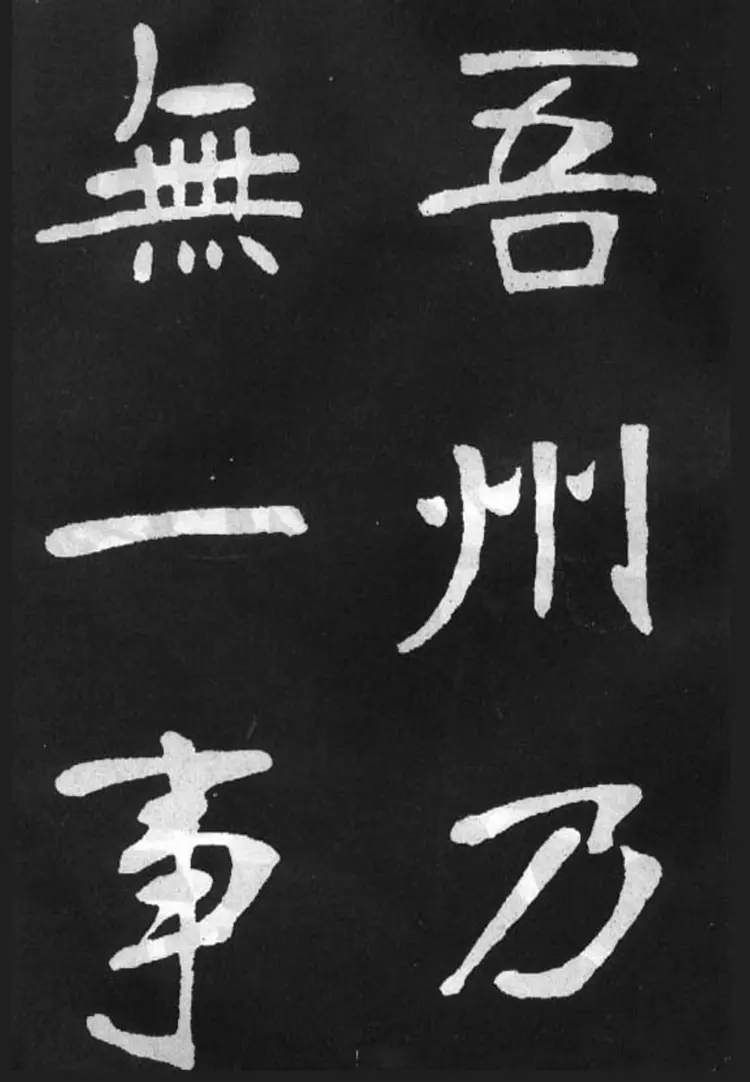 吾州乃
無一事